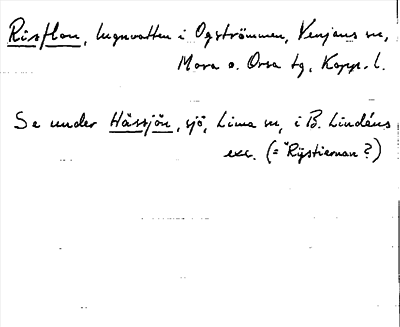 Risflon, lugnvatten i Ogströmmen, Venjans sn,
Mora o. Orsa tg, Kopp. l.
Se under Hässjön, sjö, Lima sn, i B. Lindéns
exc. (= "Rijstiernan?)